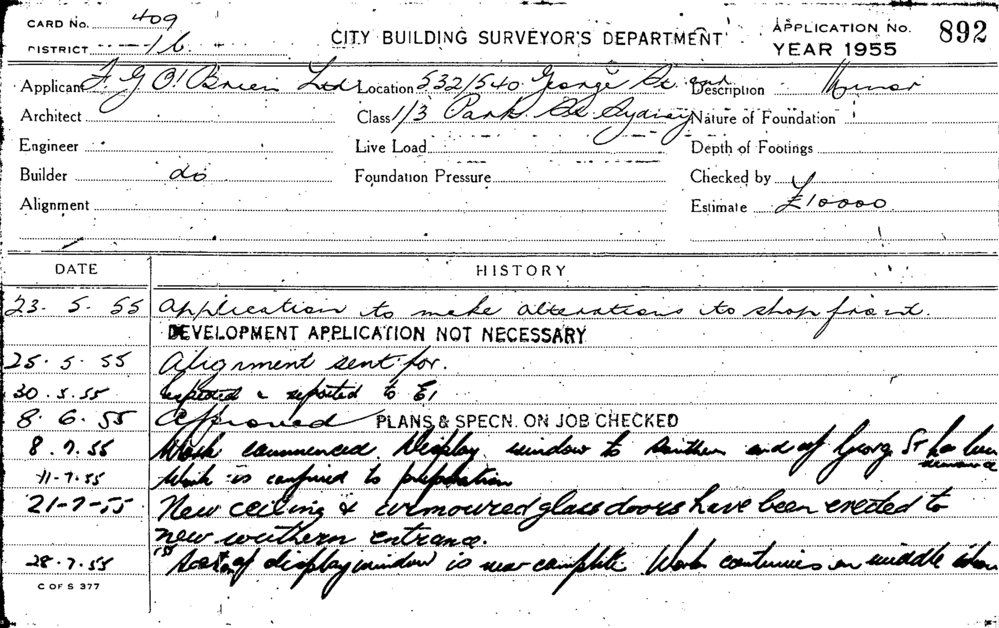 CARD No. 409
DISTRICT 16
CITY BUILDING SURVEYOR'S DEPARTMENT
APPLICATION No. 892
YEAR 1955
Applicant F G O'Brien Ltd Location 532/540 George St. and Description Minor
Architect Class 1/3 Park St Sydney Nature of Foundation
Engineer Live Load Depth of Footings
Builder do Foundation Pressure Checked by
Alignment Estimate £10000
DATE HISTORY
23. 5. 55 Application to make alterations to shop front.
DEVELOPMENT APPLICATION NOT NECESSARY
25. 5. 55 Alignment sent for.
30. 5. 55 Inspected & reported to E1
8. 6. 55 Approved PLANS & SPECN. ON JOB CHECKED
8. 7. 55 Work commenced. Display window to Southern end of George St has been
11-7-55 Work is confined to preparation
21-7-55 New ceiling & armoured glass doors have been erected to
new southern entrance.
28. 7. 55 of display window is near complete. Work continues on middle
C OF S 377